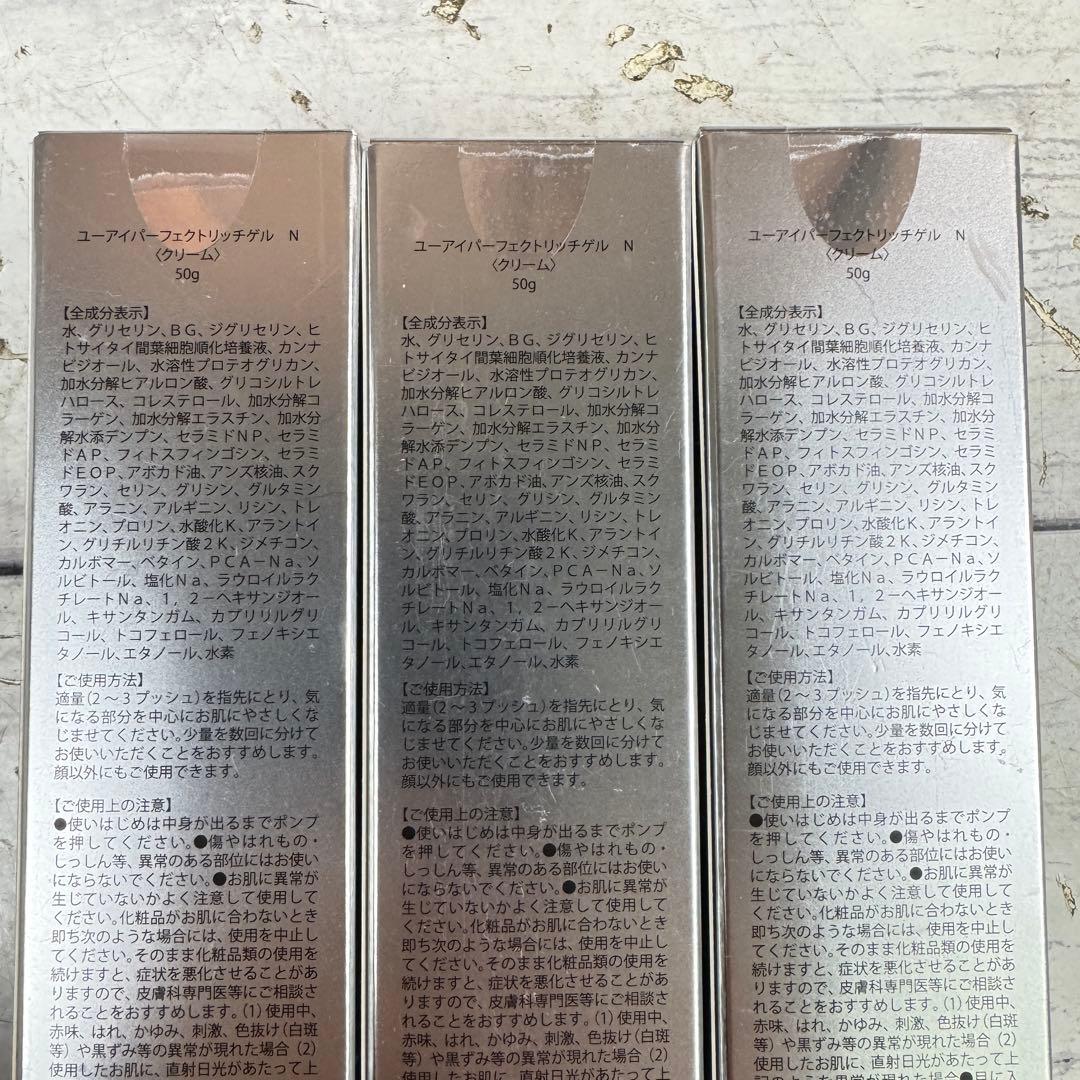 ユーアイパーフェクトリッチゲル　N
〈クリーム〉
50g
【全成分表示】
水、グリセリン、BG、ジグリセリン、ヒ
トサイタイ間葉細胞順化培養液、カンナ
ビジオール、水溶性プロテオグリカン、
加水分解ヒアルロン酸、グリコシルトレ
ハロース、コレステロール、加水分解コ
ラーゲン、加水分解エラスチン、加水分
解水添デンプン、セラミドNP、セラミ
ドAP、フィトスフィンゴシン、セラミ
ドEOP、アボカド油、アンズ核油、スク
ワラン、セリン、グリシン、グルタミン
酸、アラニン、アルギニン、リシン、トレ
オニン、プロリン、水酸化K、アラントイ
ン、グリチルリチン酸2K、ジメチコン、
カルボマー、ベタイン、PCA−Na、ソ
ルビトール、塩化Na、ラウロイルラク
チレートNa、1，2−ヘキサンジオー
ル、キサンタンガム、カプリリルグリ
コール、トコフェロール、フェノキシエ
タノール、エタノール、水素
【ご使用方法】
適量（2〜3プッシュ）を指先にとり、気
になる部分を中心にお肌にやさしくな
じませてください。少量を数回に分けて
お使いいただくことをおすすめします。
顔以外にもご使用できます。
【ご使用上の注意】
●使いはじめは中身が出るまでポンプ
を押してください。●傷やはれもの・
しっしん等、異常のある部位にはお使い
にならないでください。●お肌に異常が
生じていないかよく注意して使用して
ください。化粧品がお肌に合わないとき
即ち次のような場合には、使用を中止し
てください。そのまま化粧品類の使用を
続けますと、症状を悪化させることがあ
りますので、皮膚科専門医等にご相談さ
れることをおすすめします。（1）使用中、
赤味、はれ、かゆみ、刺激、色抜け（白斑
等）や黒ずみ等の異常が現れた場合（2）
使用したお肌に、直射日光があたって上
ユーアイパーフェクトリッチゲル　N
〈クリーム〉
50g
【全成分表示】
水、グリセリン、BG、ジグリセリン、ヒ
トサイタイ間葉細胞順化培養液、カンナ
ビジオール、水溶性プロテオグリカン、
加水分解ヒアルロン酸、グリコシルトレ
ハロース、コレステロール、加水分解コ
ラーゲン、加水分解エラスチン、加水分
解水添デンプン、セラミドNP、セラミ
ドAP、フィトスフィンゴシン、セラミ
ドEOP、アボカド油、アンズ核油、スク
ワラン、セリン、グリシン、グルタミン
酸、アラニン、アルギニン、リシン、トレ
オニン、プロリン、水酸化K、アラントイ
ン、グリチルリチン酸2K、ジメチコン、
カルボマー、ベタイン、PCA−Na、ソ
ルビトール、塩化Na、ラウロイルラク
チレートNa、1，2−ヘキサンジオー
ル、キサンタンガム、カプリリルグリ
コール、トコフェロール、フェノキシエ
タノール、エタノール、水素
【ご使用方法】
適量（2〜3プッシュ）を指先にとり、気
になる部分を中心にお肌にやさしくな
じませてください。少量を数回に分けて
お使いいただくことをおすすめします。
顔以外にもご使用できます。
【ご使用上の注意】
●使いはじめは中身が出るまでポンプ
を押してください。●傷やはれもの・
しっしん等、異常のある部位にはお使い
にならないでください。●お肌に異常が
生じていないかよく注意して使用して
ください。化粧品がお肌に合わないとき
即ち次のような場合には、使用を中止し
てください。そのまま化粧品類の使用を
続けますと、症状を悪化させることがあ
りますので、皮膚科専門医等にご相談さ
れることをおすすめします。（1）使用中、
赤味、はれ、かゆみ、刺激、色抜け（白斑
等）や黒ずみ等の異常が現れた場合（2）
使用したお肌に、直射日光があたって上
ユーアイパーフェクトリッチゲル　N
〈クリーム〉
50g
【全成分表示】
水、グリセリン、BG、ジグリセリン、ヒ
トサイタイ間葉細胞順化培養液、カンナ
ビジオール、水溶性プロテオグリカン、
加水分解ヒアルロン酸、グリコシルトレ
ハロース、コレステロール、加水分解コ
ラーゲン、加水分解エラスチン、加水分
解水添デンプン、セラミドNP、セラミ
ドAP、フィトスフィンゴシン、セラミ
ドEOP、アボカド油、アンズ核油、スク
ワラン、セリン、グリシン、グルタミン
酸、アラニン、アルギニン、リシン、トレ
オニン、プロリン、水酸化K、アラントイ
ン、グリチルリチン酸2K、ジメチコン、
カルボマー、ベタイン、PCA−Na、ソ
ルビトール、塩化Na、ラウロイルラク
チレートNa、1，2−ヘキサンジオー
ル、キサンタンガム、カプリリルグリ
コール、トコフェロール、フェノキシエ
タノール、エタノール、水素
【ご使用方法】
適量（2〜3プッシュ）を指先にとり、気
になる部分を中心にお肌にやさしくな
じませてください。少量を数回に分けて
お使いいただくことをおすすめします。
顔以外にもご使用できます。
【ご使用上の注意】
●使いはじめは中身が出るまでポンプ
を押してください。●傷やはれもの・
しっしん等、異常のある部位にはお使い
にならないでください。●お肌に異常が
生じていないかよく注意して使用して
ください。化粧品がお肌に合わないとき
即ち次のような場合には、使用を中止し
てください。そのまま化粧品類の使用を
続けますと、症状を悪化させることがあ
りますので、皮膚科専門医等にご相談さ
れることをおすすめします。（1）使用中、
赤味、はれ、かゆみ、刺激、色抜け（白斑
等）や黒ずみ等の異常が現れた場合（2）
使用したお肌に、直射日光があたって上
記のような異常が現れた場合●目に入